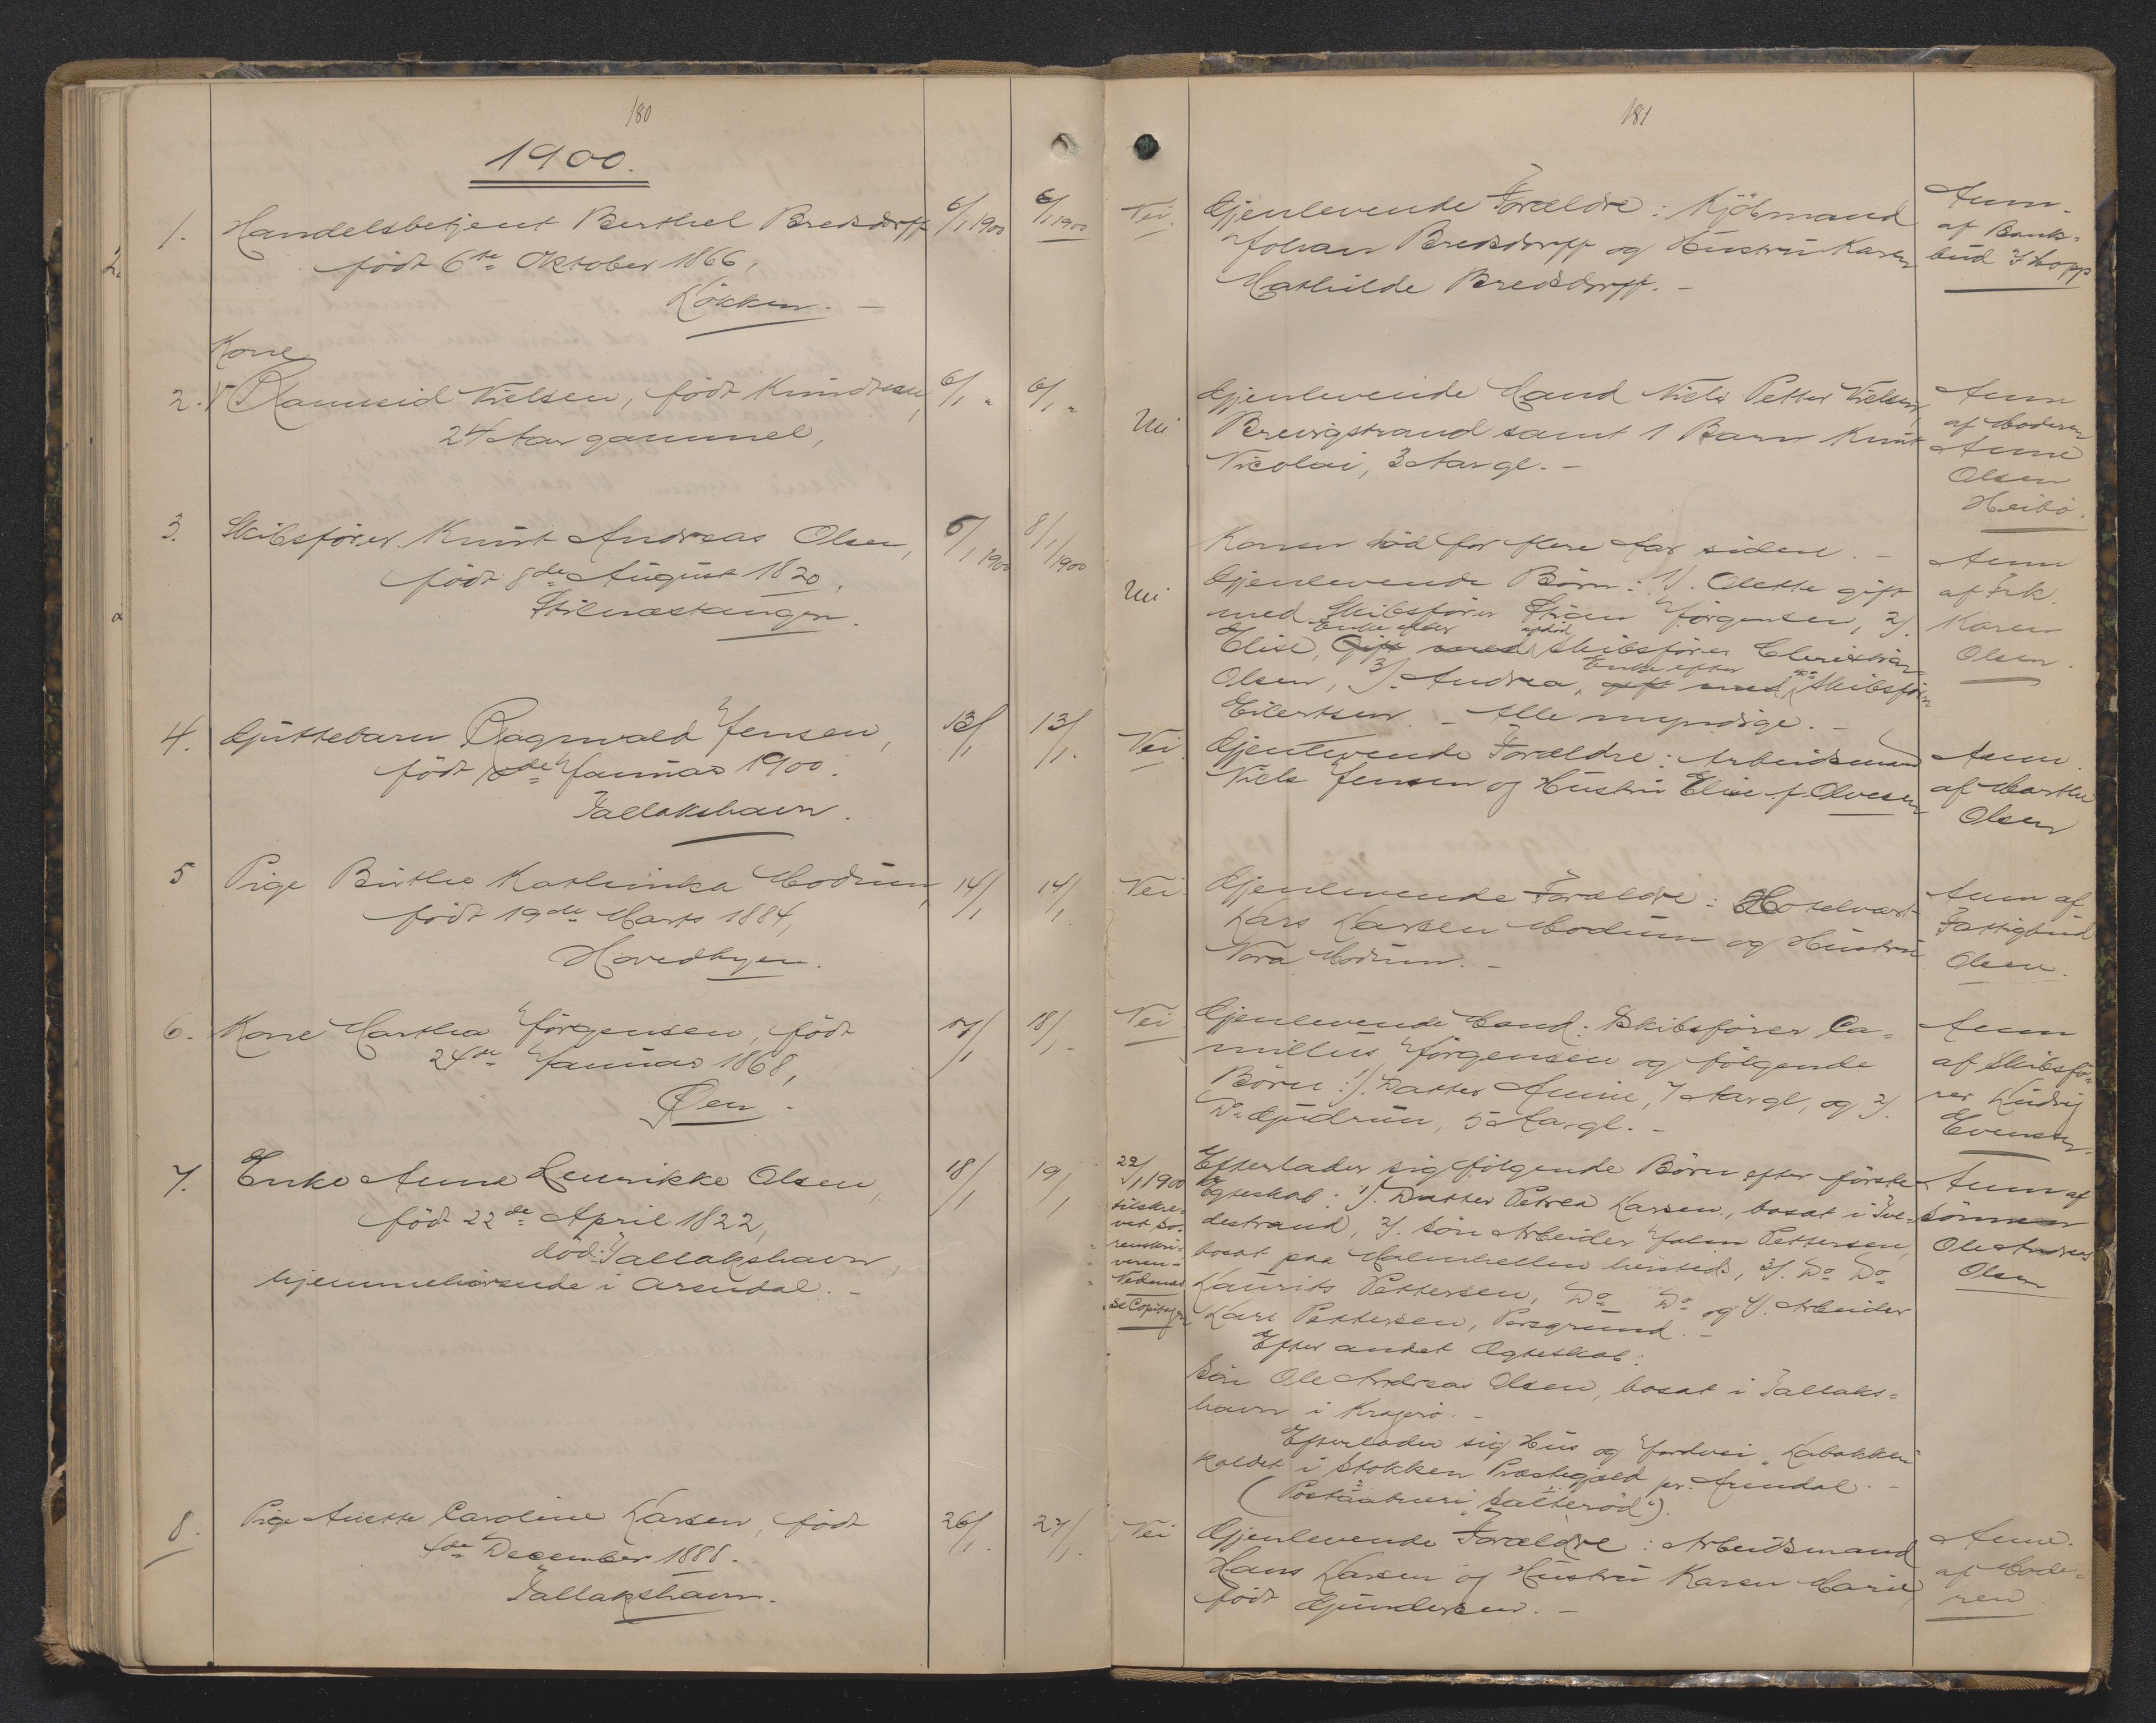 180
1900.
1. Handelsbetjent Berthel Bredsdorff 6/1 1900 6/1 1900
født 6te Oktober 1866,
Løkken. —
Kone
2. Ranneid Nielsen, født Knudtsen, 6/1 " 6/1 "
24 Aar gammel,
3. Skibsfører Knut Andreas Olsen, 5/1 1900 8/1 1900
født 8de August 1820,
Stilnæstangen.
4. Guttebarn Ragnvald Jensen, 13/1 13/1.
født de Januar 1900.
Tallakshavn.
5 Pige Birthe Kathinka Modum, 14/1 14/1
født 19de Marts 1884,
Hovedbyen.
6. Kone Martha Jørgensen, født 17/1 18/1
24de Januar 1868,
Øen.
7. Enke Anne Henrikke Olsen, 18/1 19/1
født 22de April 1822,
død: Tallakshavn,
hjemmehørende i Arendal. —
8. Pige Anette Caroline Larsen, født 26/1. 27/1.
4de December 1888.
Tallakshavn.
181
Nei. Gjenlevende Forældre: Kjøbmand
Johan Bredsdorff og Hustru Karen
Mathilde Bredsdorff. —
Anm.
af Bank-
bud Stopp
Uni Gjenlevende Mand Niels Petter Nielsen,
Brevigstrand samt 1 Barn Knut
Nicolai, 3 Aar gl. —
Anm
af Moderen
Anne
Olsen
Heibø.
Konen død for flere Aar siden. —
Uni Gjenlevende Børn: 1/. Olette gift
med Skibsfører Stian Jørgensen, 2/.
Enke efter afdød
Elise, Gift med Skibsfører Christian
Enke efter
Olsen, 3/. Andrea, gift med Skibsfører
Eilertsen. — Alle myndige. —
Anm
af Frk.
Karen
Olsen.
Nei. Gjenlevende Forældre: Arbeidsmand
Niels Jensen og Hustru Elise f. Olvesen
Anm.
af Marthe
Olsen
Nei Gjenlevende Forældre: Hotelvært
Lars Larsen Modum og Hustru
Nora Modum. —
Anm af
Fattigbud
Olsen.
Nei Gjenlevende Mand: Skibsfører Ca-
millus Jørgensen og følgende
Børn: 1/. Datter Annie, 7 Aar gl, og 2/.
Do Gudrun, 5 Aar gl. —
Anm
af Skibsfø-
rer Ludvig
Evensen.
22/1 1900
tilskre-
vet So-
renskri-
veren-
Nedenæs
Se Copibogen
Efterlader sig følgende Børn efter første
Ægteskab: 1/. Datter Petrea Larsen, bosat i Tve-
destrand, 2/. Søn Arbeider Johan Pettersen,
bosat paa Malmhellen hersteds, 3/. Do Do
Laurits Pettersen, Do Do og 4/. Arbeider
Lars Pettersen, Porsgrund. —
Efter andet Ægteskab:
Søn Ole Andreas Olsen, bosat i Tallaks-
havn i Kragerø. —
Efterlader sig Hus og Jordvei "Labakken"
kaldet i Stokken Præstegjæld pr. Arendal. —
(Postaabneri "Salterød").
Anm af
Sønnen
Ole Andreas
Olsen
Nei Gjenlevende Forældre: Arbeidsmand
Hans Larsen og Hustru Karen Marie
født Gundersen. —
Anm.
af Mode-
ren